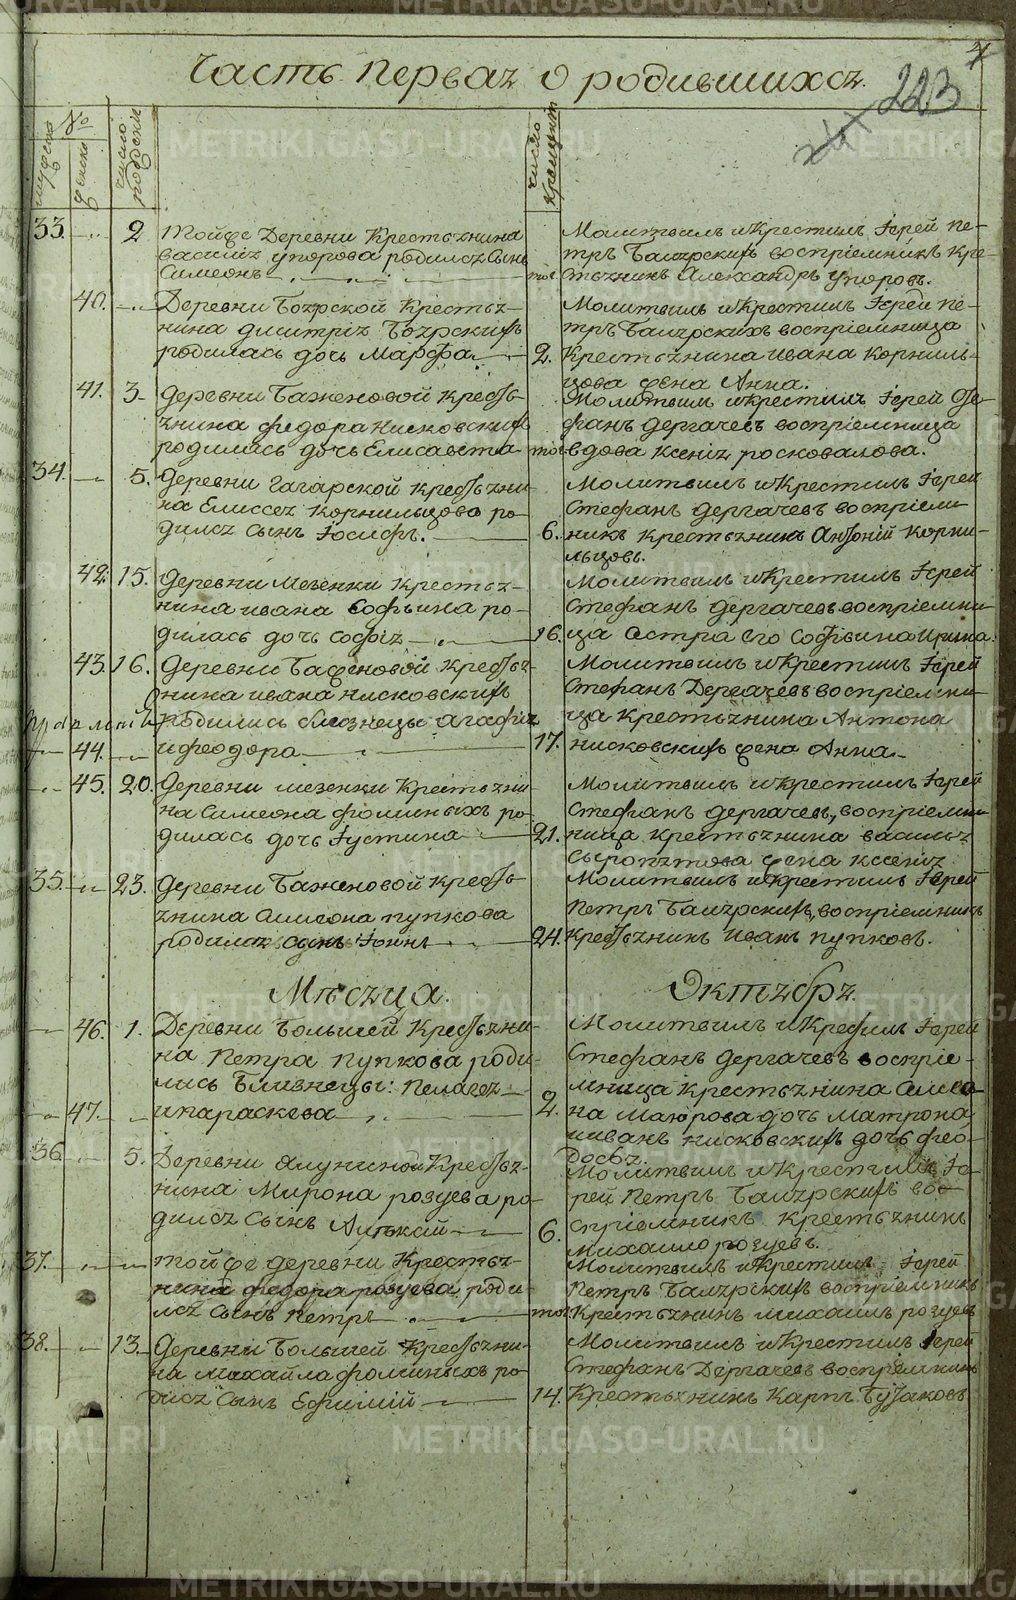 Часть первая о родившихся.
4
223
№
мужеска
женска
число рождения
число крещения
33. 2 Тойже Деревни Крестьянина
Василия упорова родился сынъ
Симеонъ
Молитвилъ и крестилъ Iерей Пе-
тръ Башорскихъ восприемникъ Кре-
тог. стьянинъ Александръ упоровъ.
40. Деревни Боярской Крестья-
нина Димитрiя Боярскихъ
родилась дочь Марфа
Молитвилъ и крестилъ Iерей пе-
тръ восприемница
2. Крестьянина Ивана Корниль-
цова жена Анна.
41. 3 Деревни Баженовой Кресть-
янина Федора Нисковскихъ
родилась дочь Елисавета
Молитвилъ и крестилъ Iерей Сте-
фанъ Дергачевъ восприемница
тог вдова Ксенiя росковалова.
34. 5. Деревни Гагарской Крестьяни-
на Елиссея Корнильцова ро-
дился сынъ Iосифъ.
Молитвилъ и Крестилъ Iерей
Стефанъ Дергачевъ восприем-
6. никъ крестьянинъ Антонiй Корни-
льцовъ.
42. 15. Деревни Мезенки крестья-
нина Ивана Софьина ро-
дилась дочь Софiя
Молитвилъ и Крестилъ Iерей
Стефанъ Дергачевъ восприемни-
16. ца сестра его Софьина Ирина.
43. 16. Деревни Баженовой крестья-
нина Ивана Нисковскихъ
родились близнецы Агафiя
44. и Феодора
Молитвилъ и Крестилъ Iерей
Стефанъ Дергачевъ восприемни-
ца крестьянина Антона
17. Нисковскихъ жена Анна
45. 20. Деревни Мезенки Крестьяни-
на Симеона Фоминыхъ ро-
дилась дочь Iустина
Молитвилъ и Крестилъ Iерей
Стефанъ Дергачевъ, восприем-
21. ница крестьянина Василья
Сыропятова жена Ксенiя
35. 23. Деревни Баженовой Кресть-
янина Симеона пупкова
родился сынъ Iоннъ
Молитвилъ и крестилъ Iерей
Петръ восприемникъ
24. крестьянинъ Иванъ пупковъ.
Месяца Октября.
46. 1. Деревни Большей Крестьяни-
на Петра пупкова роди-
лись близнецы: Пелагея
47. и параскева
Молитвилъ и Крестилъ Iерей
Стефанъ Дергачевъ восприе-
мница крестьянина Симео-
2. на Маюрова дочь Матрона
и Иванъ Нисковскихъ дочь Фео-
досья.
36 5. Деревни Ялуниной Крестья-
нина Мирона розуева ро-
дился сынъ
Молитвилъ и крестилъ Iе-
рей Петръ во-
6. сприемникъ Крестьянинъ
Михайло розуевъ.
37. тойже деревни Крестья-
нина Федора розуева роди-
лся сынъ Петръ
Молитвилъ и крестилъ Iерей
Петръ восприемникъ
тог Крестьянинъ Михаилъ розуевъ
38. 13. Деревни Большей Крестьяни-
на Михайла Фоминыхъ ро-
дился сынъ Ефимiй
Молитвилъ и Крестилъ Iерей
Стефанъ Дергачевъ восприемникъ
14. Крестьянинъ Карпъ Бутаковъ
METRIKI.GASO-URAL.RU